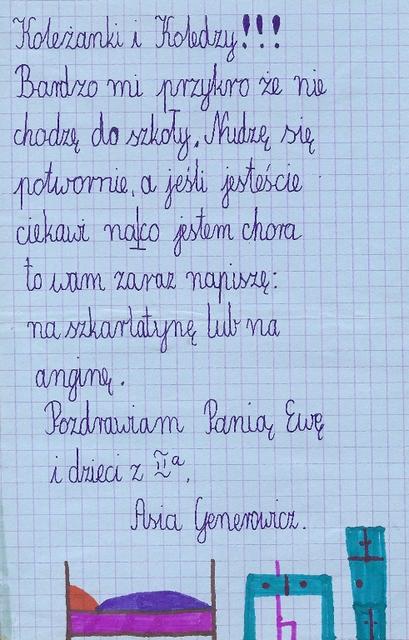 Koleżanki i Koledzy!!!
Bardzo mi przykro że nie
chodzę do szkoły. Nudzę się
potwornie, a jeśli jesteście
ciekawi na|co jestem chora
to wam zaraz napiszę:
na szkarłatynę lub na
anginę.
Pozdrawiam Panią Ewę
i dzieci z IIa.
Asia Generowicz.